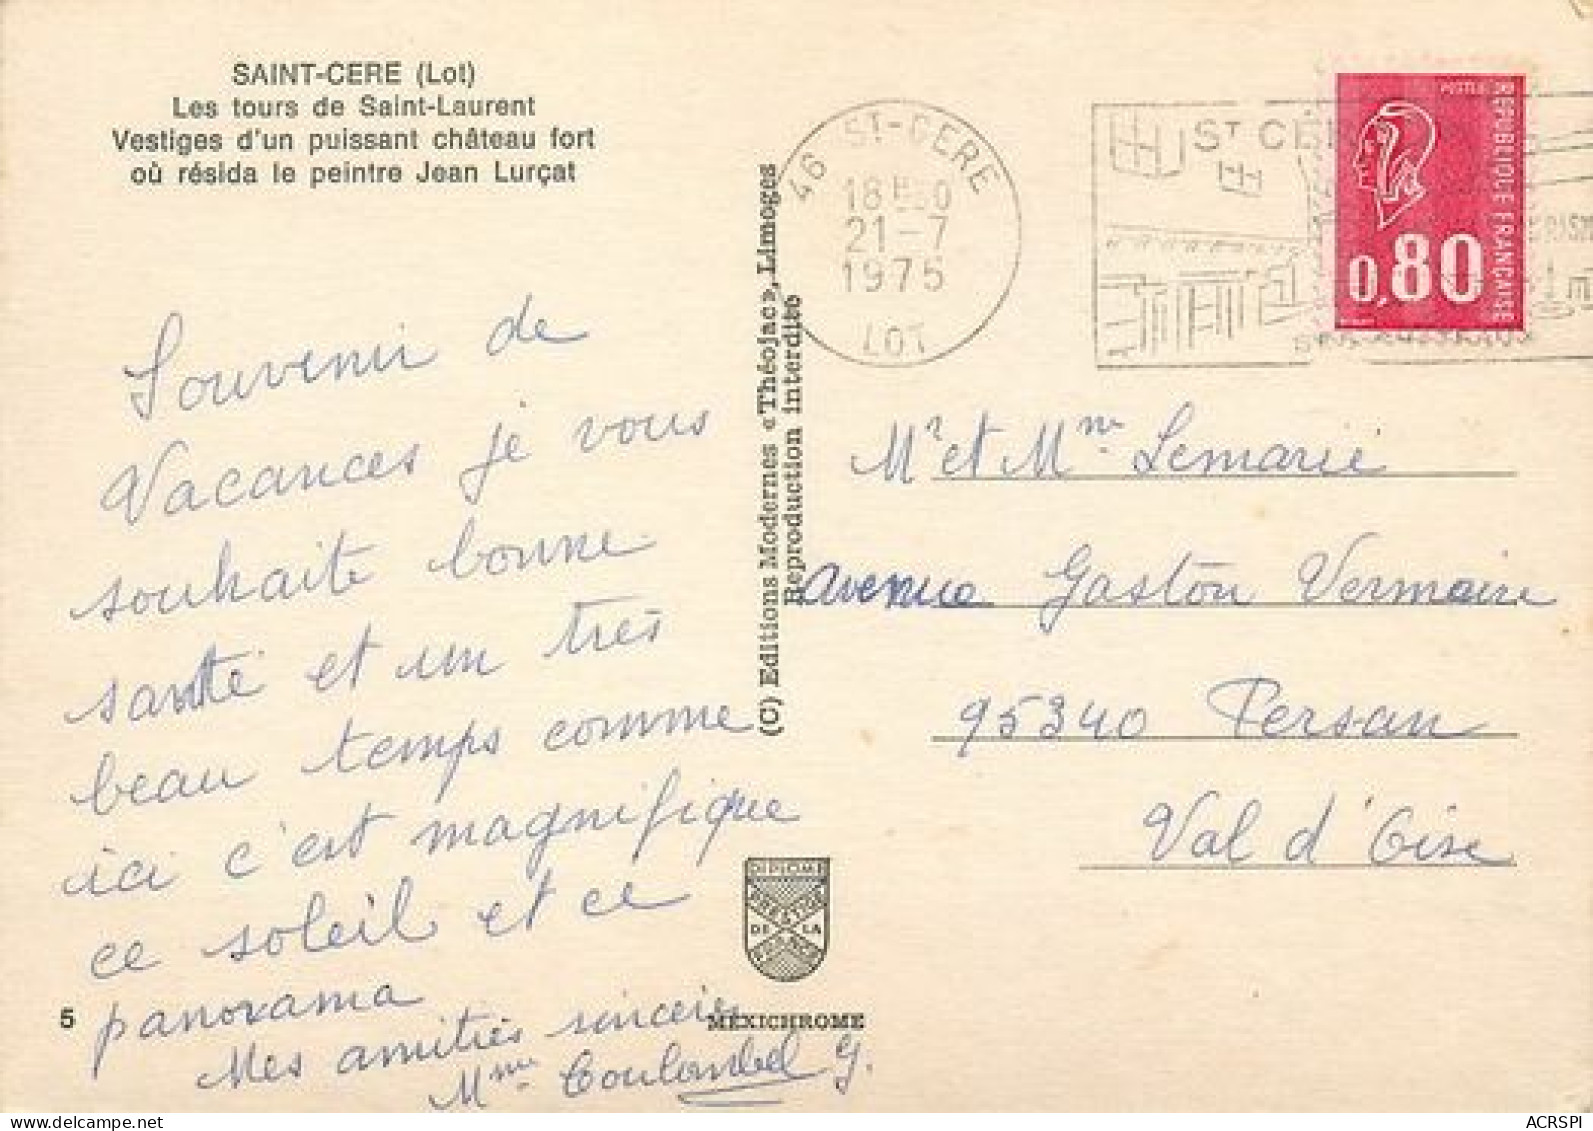 SAINT-CERE (Lot)
Les tours de Saint-Laurent
Vestiges d'un puissant château fort
où résida le peintre Jean Lurçat
46 ST-CERE
18H30
21-7
1975
LOT
ST CÉRÉ
POSTES
REPUBLIQUE FRANÇAISE
0,80
(C) Editions Modernes « Théojac », Limoges
Reproduction interdite
Souvenir de
Vacances je vous
souhaite bonne
santé et un très
beau temps comme
ici c'est magnifique
ce soleil et ce
panorama
Mes amitiés sincères
Mme Coulombel G.
Mr et Mme Lemarié
avenue Gaston Vermeire
95340 Persan
Val d'Oise
DIPLOME
PRESTIGE
DE LA
FRANCE
5
MEXICHROME
www.delcampe.net
ACRSPI